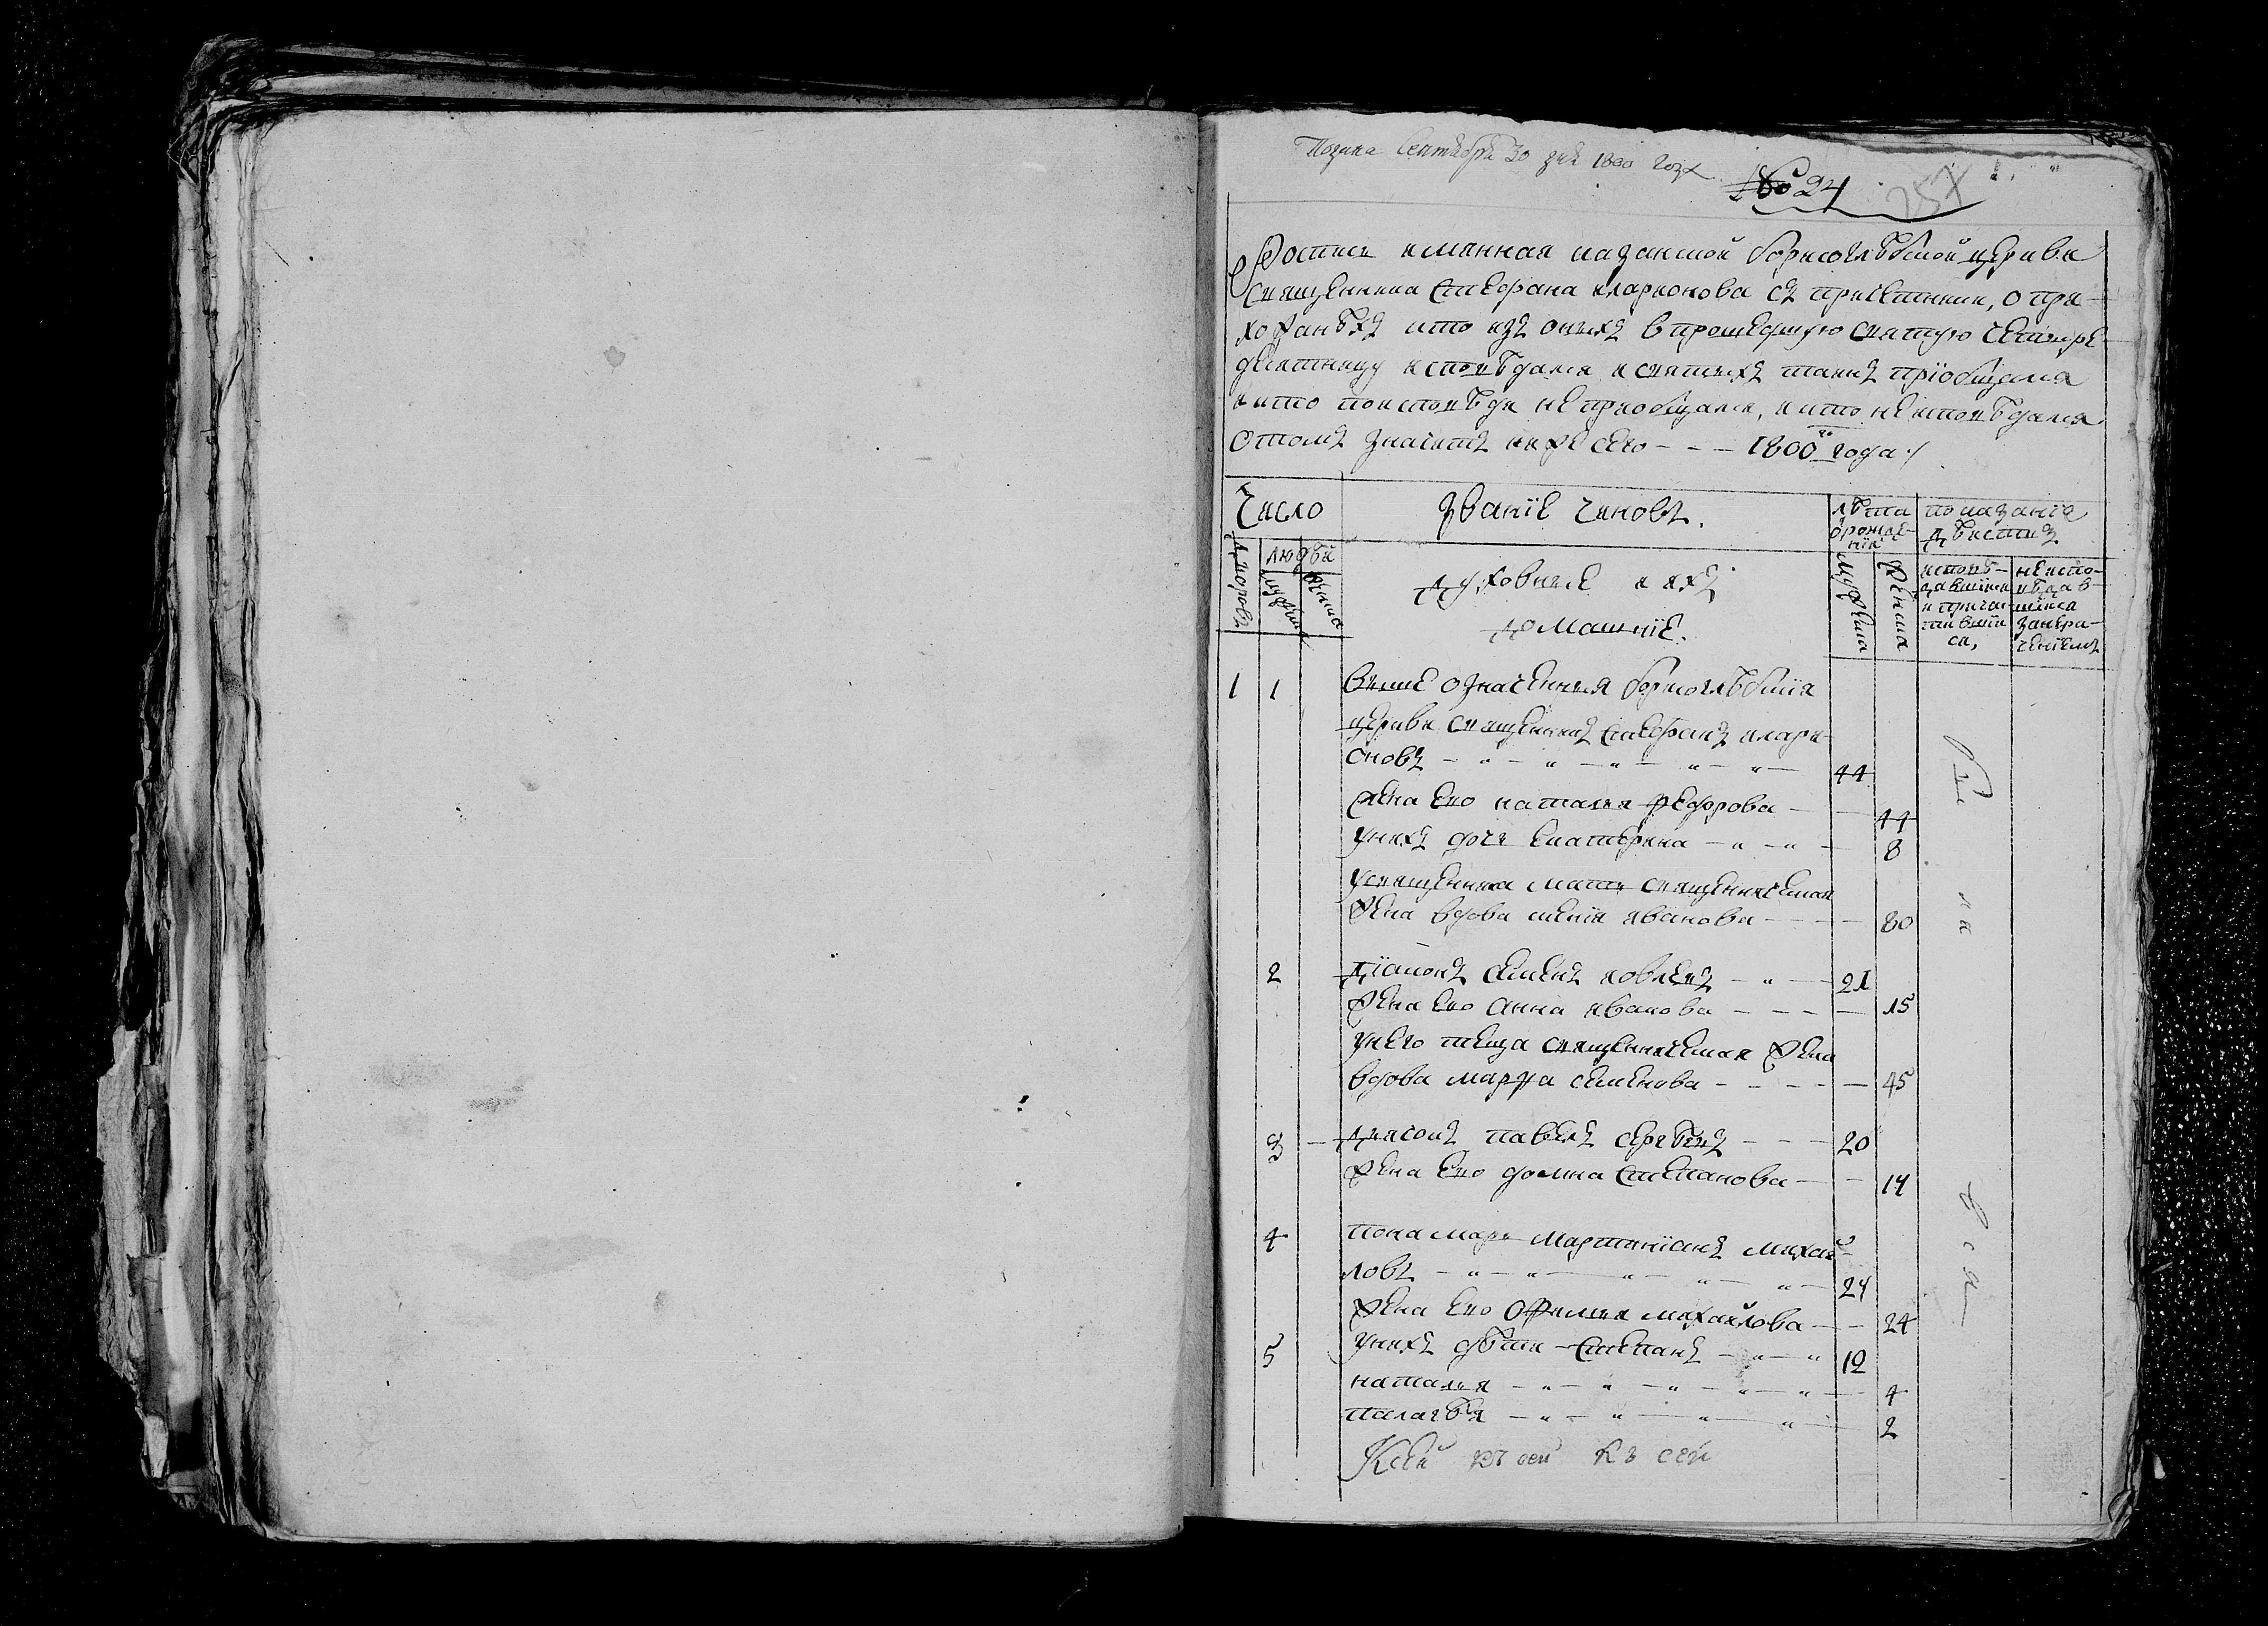 Подана Септября 30 дня 1800 года
№ 24
257
Роспись имянная казанской борисоглѣбской церкви
священника Стефана иларионова съ причетники, о при-
хожанѣхъ кто изъ оныхъ в прошедшую святую четыре-
десятницу исповѣдался и святыхъ таинъ прiобщался
и кто поисповѣди не приобщался, и кто не исповѣдался
о томъ значитъ ниже сего - - - 1800го года
Число
Званiе чиновъ.
лѣта
о рожде-
нiя
показанiя
дѣиства
дворовъ
людѣй
мужеска
женска
Духовныя и ихъ
домашнiе.
мужеска
женска
исповѣ-
давшiися
и прича-
тившiи
ся,
не испо-
вѣдав-
шiися
за нера-
ченiемъ
1 1 Выше означенныя борисоглѣбскiя
церкви священникъ Стефанъ илари-
оновъ 44
жена ево наталия федорова 44
у нихъ дочь екатерина 8
у священника мать священническая
жена вдова иванова 80
2 Дiаконъ семенъ 21
жена ево анна иванова 15
у него теща священническая жена
вдова марфа семенова 45
3 Дьячокъ павелъ сергѣевъ 20
жена ево домна степанова 14
4 пономарь мартинiанъ михай-
ловъ 24
жена ево офимия михайлова 24
5 у нихъ дѣти Степанъ 12
наталия 4
палагѣя 2
Ксей къ сей къ сей